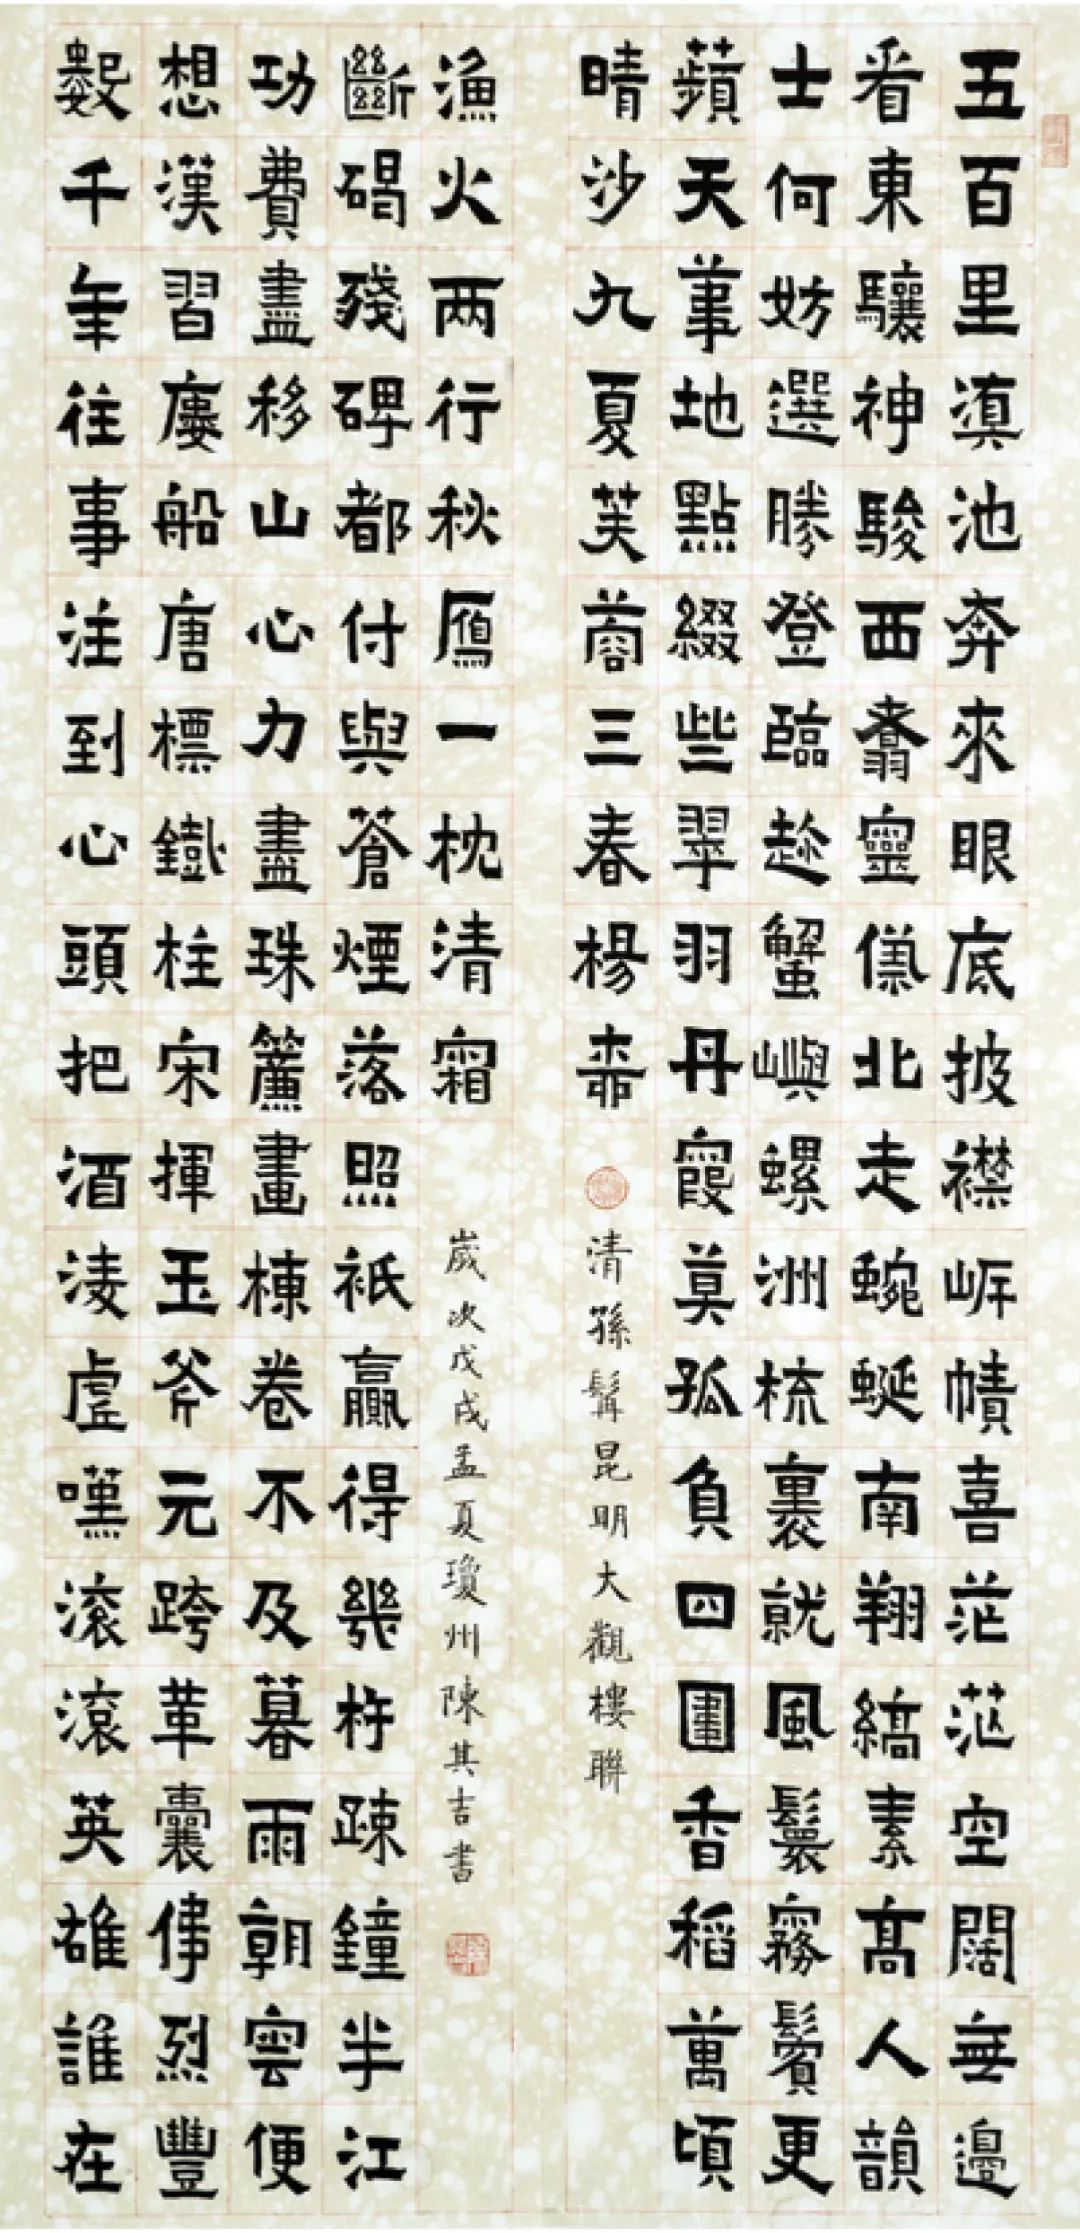 五百里滇池奔來眼底披襟岸幘喜茫茫空闊無邊
看東驤神駿西翥靈儀北走蜿蜒南翔縞素高人韻
士何妨選勝登臨趁蟹嶼螺洲梳裹就風鬟霧鬢更
蘋天葦地點綴些翠羽丹霞莫孤負四圍香稻萬頃
晴沙九夏芙蓉三春楊柳
清孫髯昆明大觀樓聯
數千年往事注到心頭把酒淩虛嘆滾滾英雄誰在
想漢習廔船唐標鐵柱宋揮玉斧元跨革囊偉烈豐
功費盡移山心力盡珠簾畫棟卷不及暮雨朝雲便
斷碣殘碑都付與蒼煙落照祇贏得幾杵踈鐘半江
漁火两行秋雁一枕清霜
歲次戊戌孟夏瓊州陳其吉書